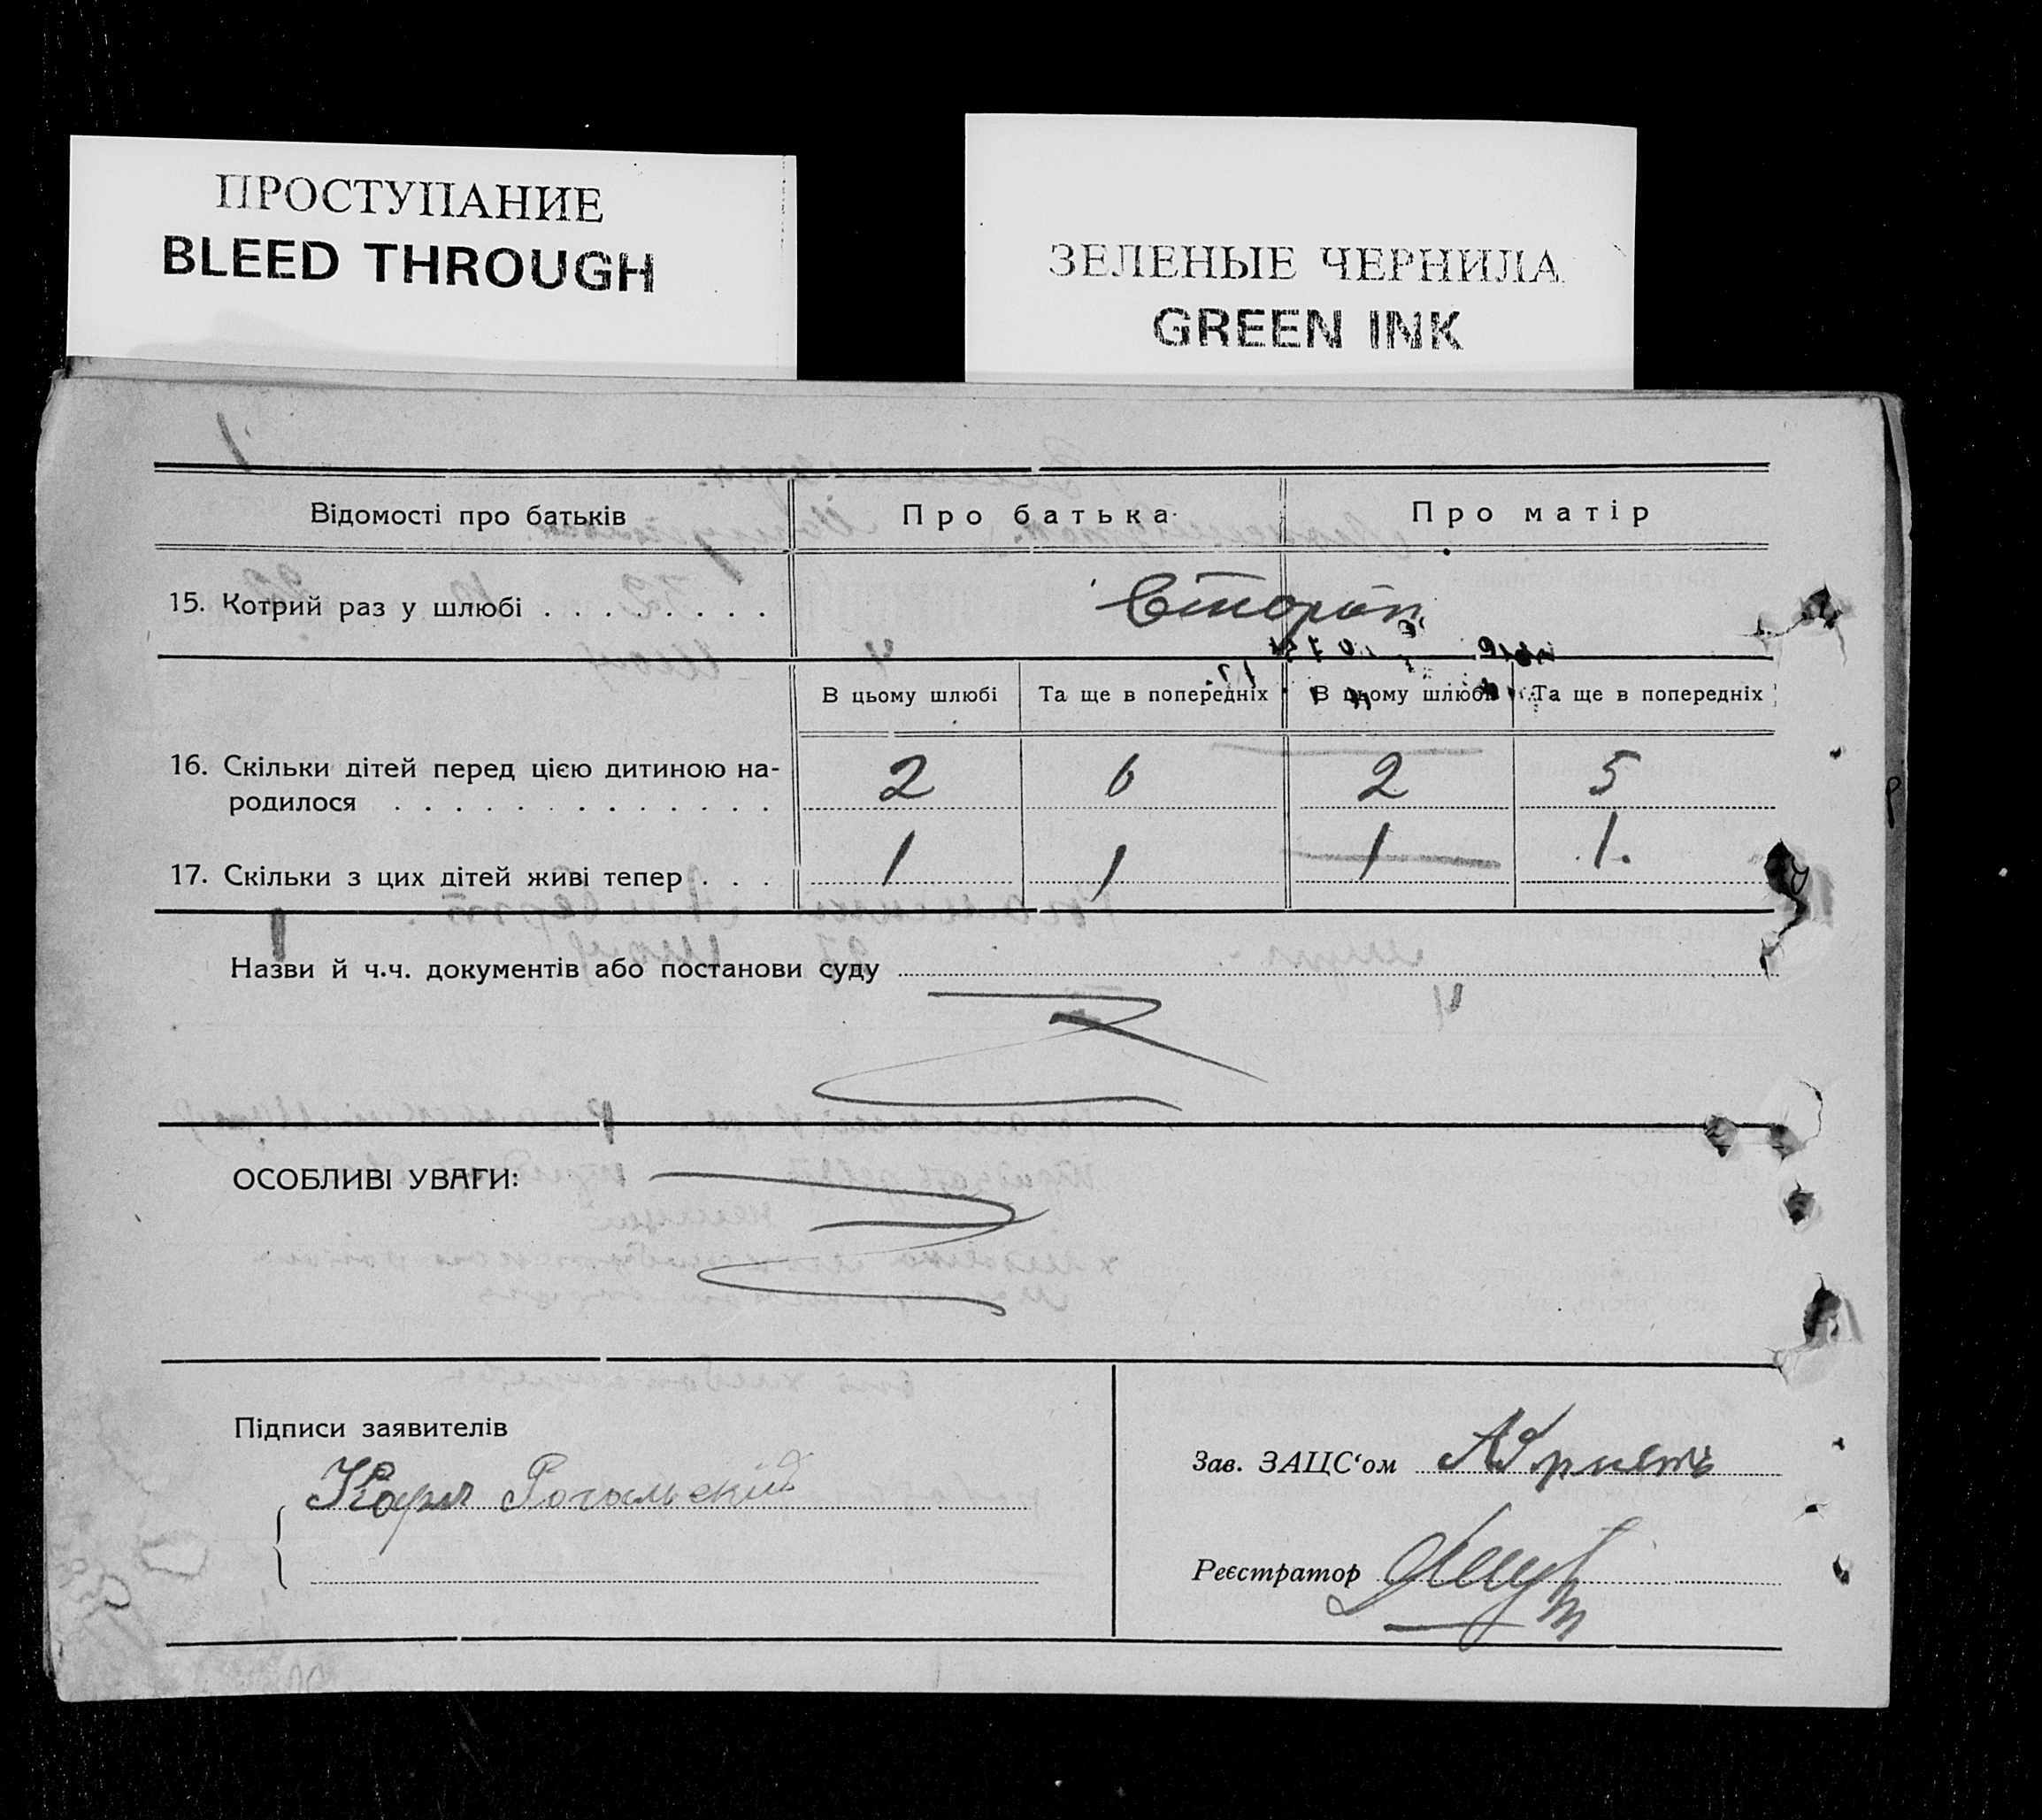 ПРОСТУПАНИЕ
BLEED THROUGH
ЗЕЛЕНЫЕ ЧЕРНИЛА
GREEN INK
Відомості про батьків Про батька Про матір
15. Котрий раз у шлюбі . . . . . . . .
В цьому шлюбі Та ще в попередніх В цьому шлюбі Та ще в попередніх
16. Скільки дітей перед цією дитиною на-
родилося . . . . . . . . . . . . . 2 6 2 5
17. Скільки з цих дітей живі тепер . . . 1 1 1 1.
Назви й ч.ч. документів або постанови суду
ОСОБЛИВІ УВАГИ:
Підписи заявителів
Карл Рогальский
Зав. ЗАЦС‘ом
Реєстратор